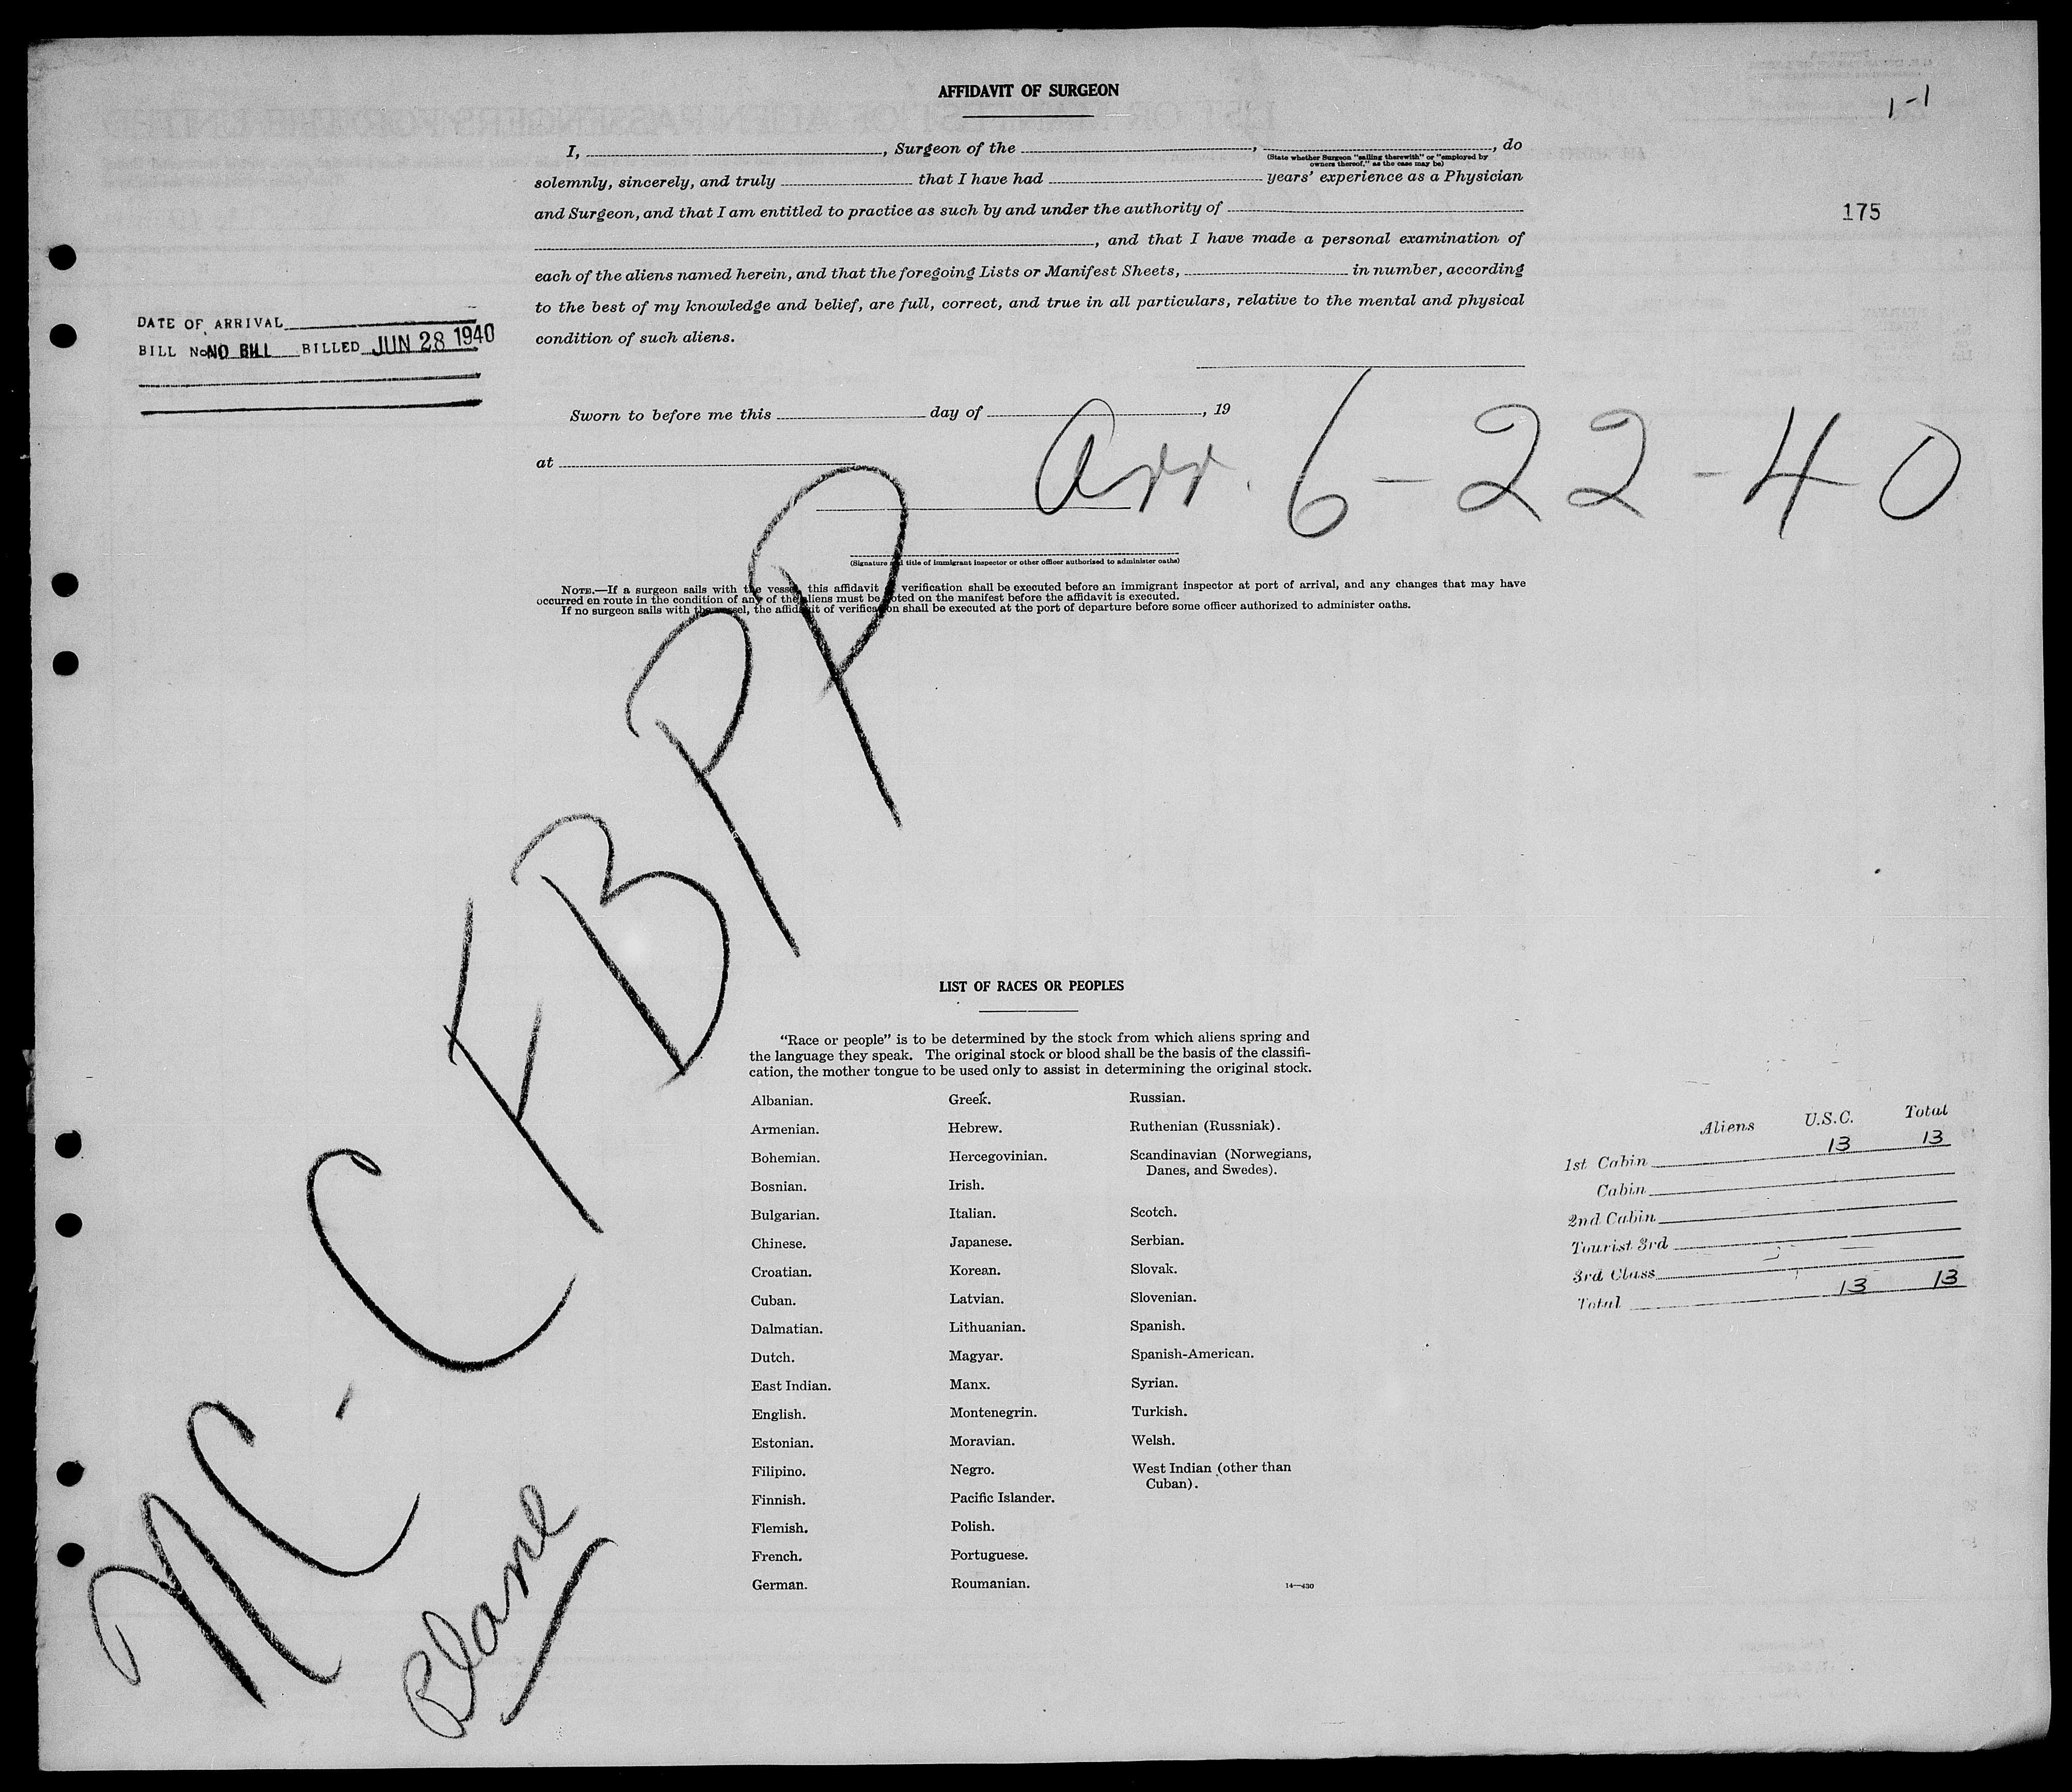 AFFIDAVIT OF SURGEON
1-1
I, , Surgeon of the , , do
(State whether Surgeon "sailing therewith" or "employed by
owners thereof," as the case may be)
solemnly, sincerely, and truly that I have had years' experience as a Physician
and Surgeon, and that I am entitled to practice as such by and under the authority of
175
, and that I have made a personal examination of
each of the aliens named herein, and that the foregoing Lists or Manifest Sheets, in number, according
to the best of my knowledge and belief, are full, correct, and true in all particulars, relative to the mental and physical
condition of such aliens.
DATE OF ARRIVAL
BILL No. NO BILL BILLED JUN 28 1940
Sworn to before me this day of , 19
at
Arr. 6-22-40
(Signature and title of immigrant inspector or other officer authorized to administer oaths)
NOTE.—If a surgeon sails with the vessel, this affidavit of verification shall be executed before an immigrant inspector at port of arrival, and any changes that may have
occurred en route in the condition of any of the aliens must be noted on the manifest before the affidavit is executed.
If no surgeon sails with the vessel, the affidavit of verification shall be executed at the port of departure before some officer authorized to administer oaths.
NC-CFBPP
Plane
LIST OF RACES OR PEOPLES
"Race or people" is to be determined by the stock from which aliens spring and
the language they speak. The original stock or blood shall be the basis of the classifi-
cation, the mother tongue to be used only to assist in determining the original stock.
Albanian.
Armenian.
Bohemian.
Bosnian.
Bulgarian.
Chinese.
Croatian.
Cuban.
Dalmatian.
Dutch.
East Indian.
English.
Estonian.
Filipino.
Finnish.
Flemish.
French.
German.
Greek.
Hebrew.
Hercegovinian.
Irish.
Italian.
Japanese.
Korean.
Latvian.
Lithuanian.
Magyar.
Manx.
Montenegrin.
Moravian.
Negro.
Pacific Islander.
Polish.
Portuguese.
Roumanian.
Russian.
Ruthenian (Russniak).
Scandinavian (Norwegians,
Danes, and Swedes).
Scotch.
Serbian.
Slovak.
Slovenian.
Spanish.
Spanish-American.
Syrian.
Turkish.
Welsh.
West Indian (other than
Cuban).
14—430
Aliens U.S.C. Total
1st Cabin 13 13
Cabin
2nd Cabin
Tourist 3rd
3rd Class
Total 13 13